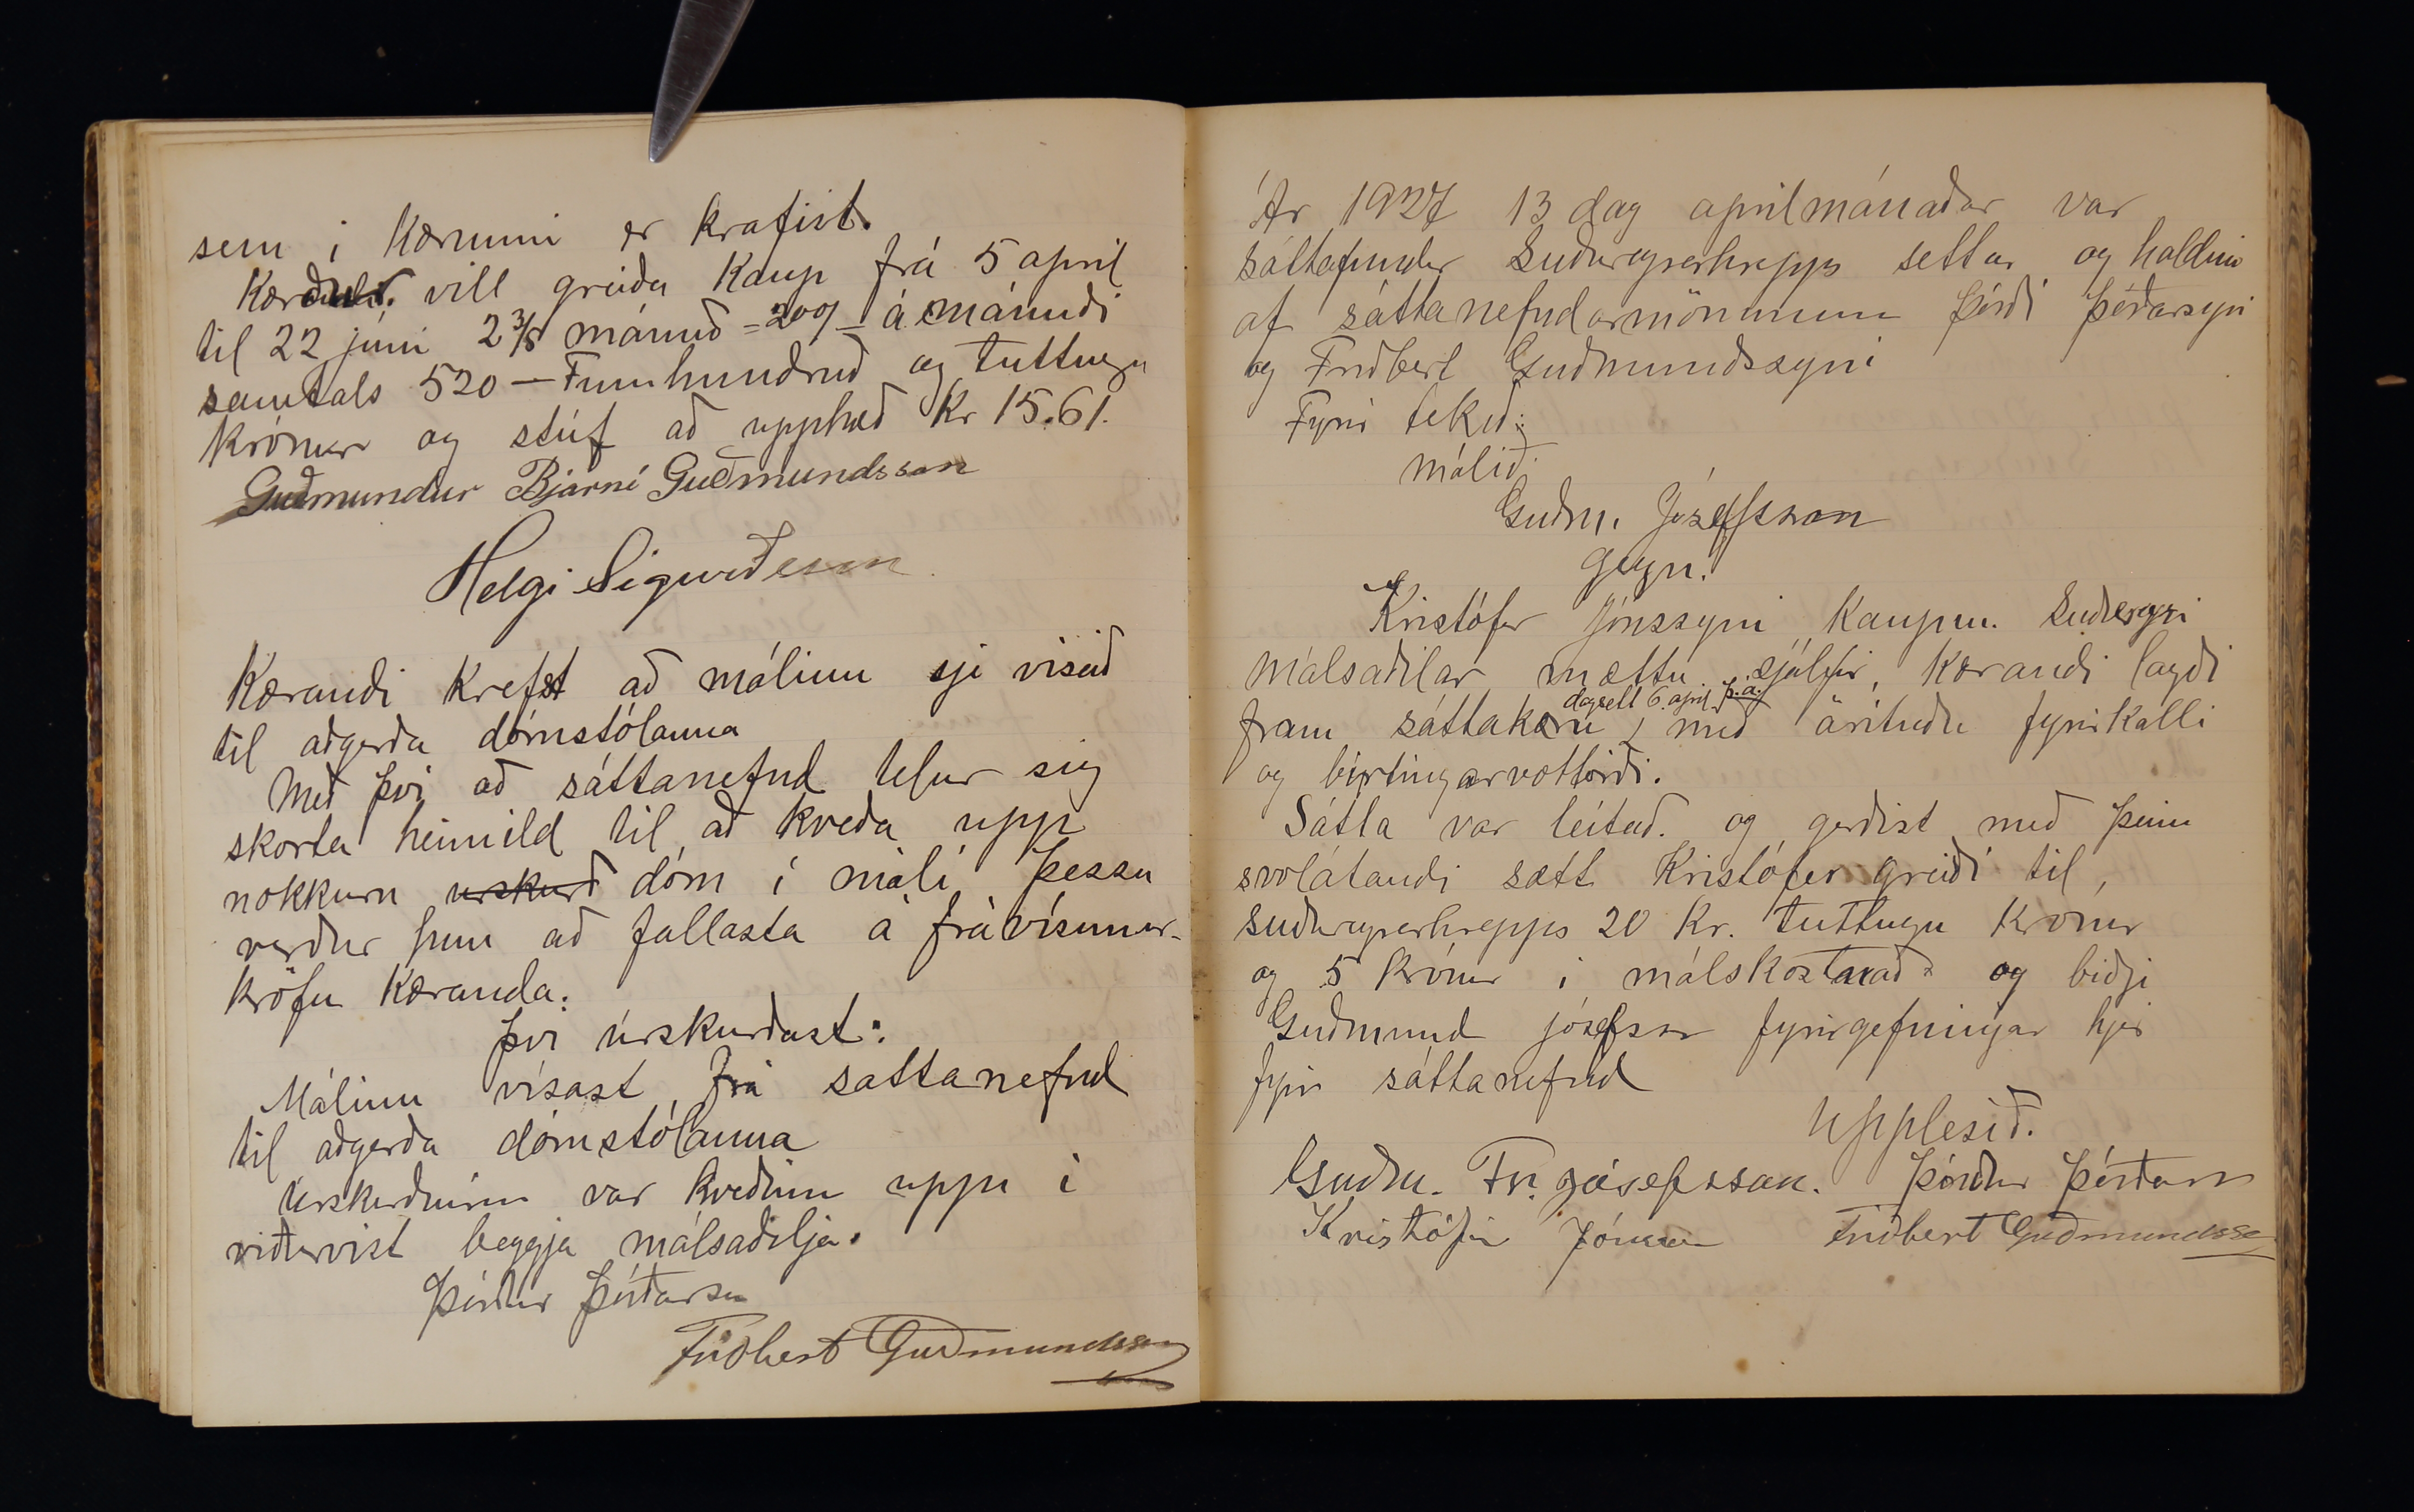 sem i kærunni er krafist.
Kærður vill greiða kaup frá 5 april
til 22 júni 2 3/5 mánuð = 200/- á mánuði
samtals 520 — Fimmhundruð og tuttugu
krónur og stúf að upphæð Kr 15.61.
Guðmundur Bjarni Guðmundsson
Helgi Sigurðsson
Kærandi krefst að málinu sje visað
til aðgerða dómstólanna
Með þvi að sáttanefnd telur sig
skorta heimild til að kveða upp
nokkurn urskurð dóm í máli þessu
verður hun að fallasta á frávísunar-
kröfu kæranda.
þvi úrskurðast:
Málinu vísast frá sattanefnd
til aðgerða dómstólanna
Úrskurðurinn var kveðinn uppi i
viðurvist beggja málsaðilja.
Þórður Þórðarson
Friðbert Guðmundsson
Ár 1927 13 dag aprilmánaðar var
sáttafundur Suðureyrarhrepps settur og haldinn
af sáttanefndarmönnum Þórði Þórðarsyni
og Friðbert Guðmundssyni
Fyrir tekið:
málið:
Guðm. Jósefsson
gegn.
Kristófer Jónssyni kaupm. Suðureyri
Málsaðilar mættu sjálfir, kærandi lagði
dagsett 6. april þ.á.
fram sáttakæru með árituðu fyrirkalli
og birtingarvottorði.
Sátta var leitað. og gerðist með þeim
svolátandi sætt Kristófer greiði til,
Suðureyrarhrepps 20 Kr. tuttugu krónur
og 5 krónur i málskostnað og biðji
Guðmund Jósefsson fyrirgefningar hjer
fyrir sáttanefnd
Upplesið.
Guðm. Fr. Jósefsson. Þórður Þórðarson
Kristófer Jónsson Friðbert Guðmundsso